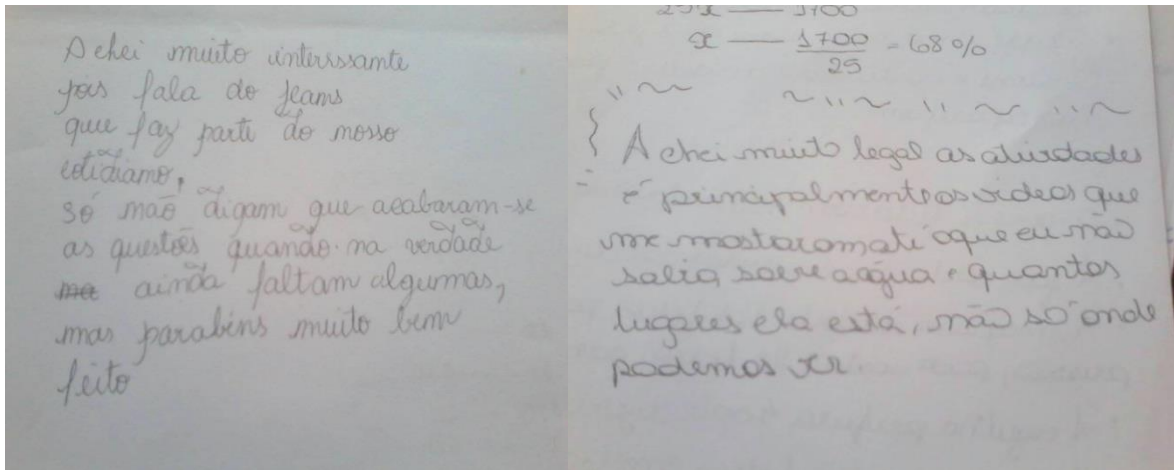 Achei muito interssante
pois fala do jeans
que faz parte do nosso
cotidiano,
só não digam que acabaram-se
as questões quando na verdade
ainda faltam algumas,
mas parabéns muito bem
feito
25x — 1700
x — 1700/25 = 68%
Achei muito legal as atividades
é principalmente os videos que
me mostaram até oque eu não
sabia sobre a água e quantos
lugares ela está, não só onde
podemos ver